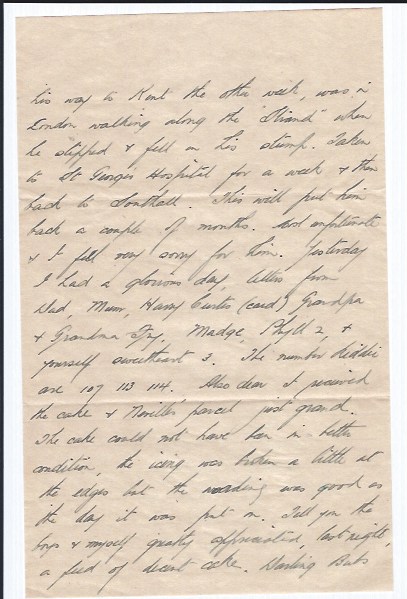 his way to Kent the other week, was in
London walking along the "Strand" when
he slipped & fell on his stump. Taken
to St Georges Hospital for a week & then
back to Southall. This will put him
back a couple of months. Most unfortunate
& I fell very sorry for him. Yesterday
I had a glorious day, letters from
Dad, Mum, Harry Curtis (card) Grandpa
& Grandma Fry, Madge, Phyll 2, &
yourself sweetheart 3. The number Kiddie
are 107 113 114. Also dear I received
the cake & Neville's parcel just grand.
The cake could not have been in better
condition, the icing was broken a little at
the edges but the wording was good as
the day it was put on. Tell you the
boys & myself greatly appreciated last night,
a feed of decent cake. Darling Bubs